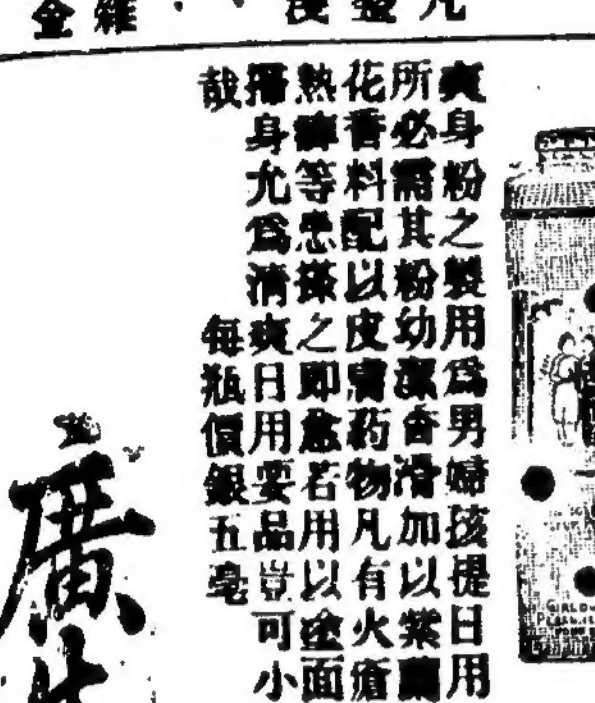 爽身粉之製用爲男婦孩提日用
所必需其粉幼潔香滑加以紫蘭
花香料配以皮膚葯物凡有火瘡
熱等患搽之即愈若用以塗面
身尤爲清爽日用要品豈可小
哉 每瓶價銀五毫
廣